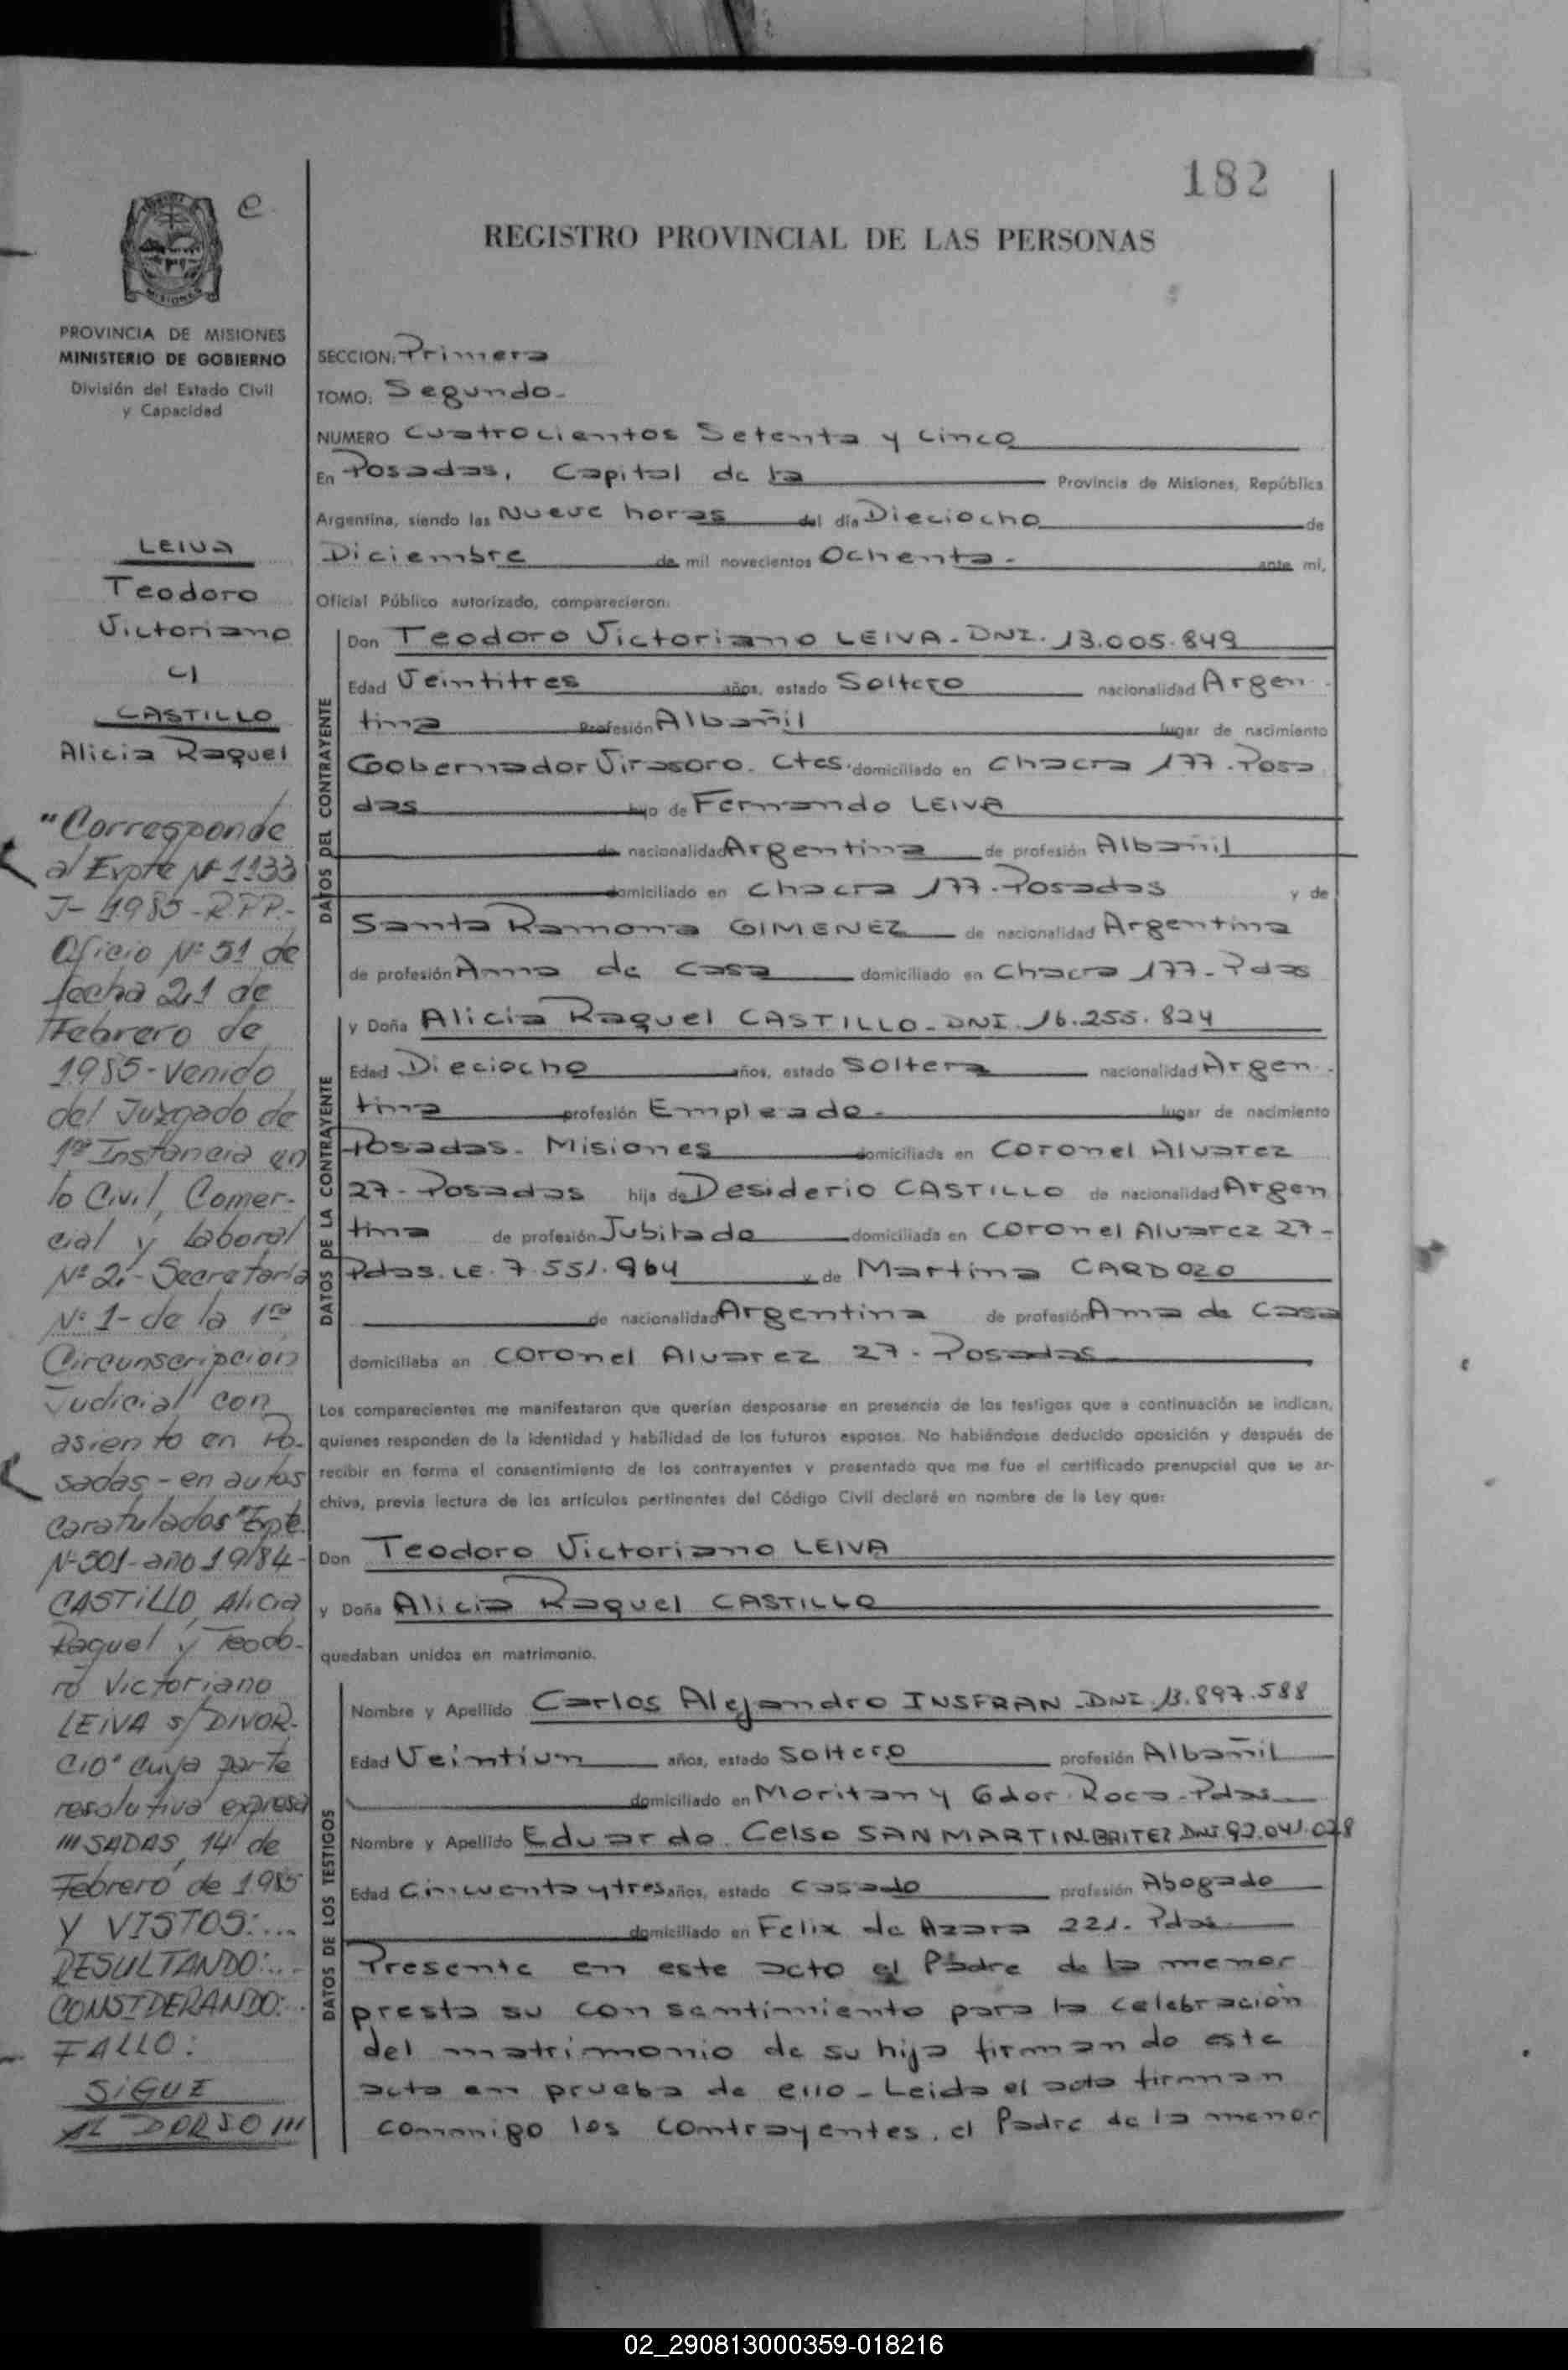 182
e
MISIONES
REGISTRO PROVINCIAL DE LAS PERSONAS
PROVINCIA DE MISIONES
MINISTERIO DE GOBIERNO
División del Estado Civil
y Capacidad
LEIVA
Teodoro
Victoriano
y
CASTILLO
Alicia Raquel
"Corresponde
al Expte Nº 1133
J- 1985 - R.P.P.-
Oficio Nº 51 de
fecha 21 de
Febrero de
1985 - venido
del Juzgado de
1ª Instancia en
lo Civil, Comer-
cial y Laboral
Nº 2 - Secretaría
Nº 1 - de la 1ra
Circunscripción
Judicial con
asiento en Po-
sadas - en autos
caratulados "Expte.
Nº 501 - año 1984 -
CASTILLO, Alicia
Raquel y Teodo-
ro Victoriano
LEIVA s/ DIVOR-
CIO" cuya parte
resolutiva expresa
///SADAS, 14 de
Febrero de 1985
Y VISTOS:...
RESULTANDO:...
CONSIDERANDO:..
FALLO:
SIGUE
AL DORSO ///
SECCION: Primera
TOMO: Segundo.
NUMERO Cuatrocientos Setenta y cinco
En Posadas, Capital de la Provincia de Misiones, República
Argentina, siendo las Nueve horas del día Dieciocho de
Diciembre de mil novecientos Ochenta. ante mi,
Oficial Público autorizado, comparecieron:
DATOS DEL CONTRAYENTE
Don Teodoro Victoriano LEIVA - DNI. 13.005.849
Edad Veintitres años, estado Soltero nacionalidad Argen
tina Profesión Albañil lugar de nacimiento
Gobernador Virasoro. Ctes. domiciliado en Chacra 177. Posa
das hijo de Fernando LEIVA
de nacionalidad Argentina de profesión Albañil
domiciliado en Chacra 177. Posadas y de
Santa Ramona GIMENEZ de nacionalidad Argentina
de profesión Ama de casa domiciliado en Chacra 177 - Pdas
DATOS DE LA CONTRAYENTE
y Doña Alicia Raquel CASTILLO - DNI. 16.255.824
Edad Dieciocho años, estado Soltera nacionalidad Argen
tina profesión Empleada. lugar de nacimiento
Posadas. Misiones domiciliada en Coronel Alvarez
27 - Posadas hija de Desiderio CASTILLO de nacionalidad Argen
tina de profesión Jubilado domiciliada en Coronel Alvarez 27 -
Pdas. LE. 7.551.964 y de Martina CARDOZO
de nacionalidad Argentina de profesión Ama de Casa
domiciliaba en Coronel Alvarez 27 - Posadas
Los comparecientes me manifestaron que querían desposarse en presencia de los testigos que a continuación se indican,
quienes responden de la identidad y habilidad de los futuros esposos. No habiéndose deducido oposición y después de
recibir en forma el consentimiento de los contrayentes y presentado que me fue el certificado prenupcial que se ar-
chiva, previa lectura de los artículos pertinentes del Código Civil declaré en nombre de la Ley que:
Don Teodoro Victoriano LEIVA
y Doña Alicia Raquel CASTILLO
quedaban unidos en matrimonio.
DATOS DE LOS TESTIGOS
Nombre y Apellido Carlos Alejandro INSFRAN - DNI. 13.897.588
Edad Veintiun años, estado Soltero profesión Albañil
domiciliado en Moritan y Gdor. Roca - Pdas
Nombre y Apellido Eduardo Celso SANMARTIN BRITEZ DNI 92.041.028
Edad Cincuenta y tres años, estado Casado profesión Abogado
domiciliado en Felix de Azara 221. Pdas
Presente en este acto el Padre de la menor
presta su consentimiento para la celebración
del matrimonio de su hija firmando este
acta en prueba de ello - Leida el acta firman
conmigo los contrayentes, el Padre de la menor
02_290813000359-018216